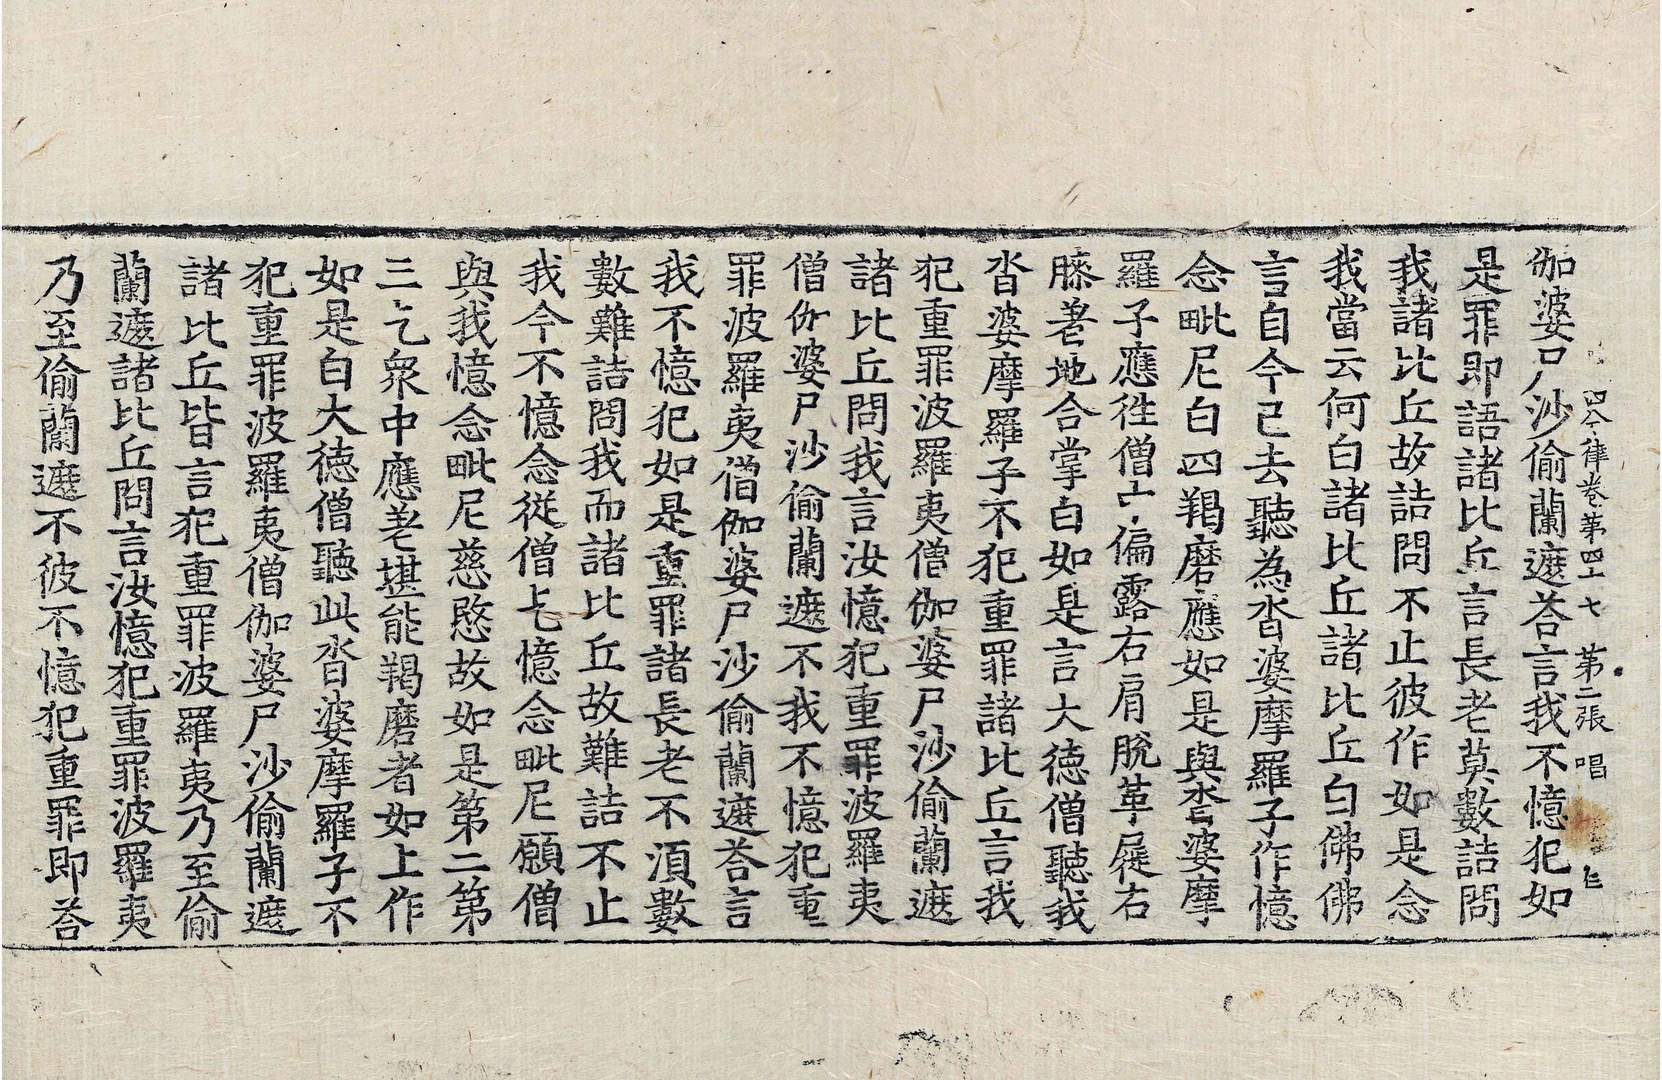 四分律卷第四十七 第二張 唱
伽婆尸沙偷蘭遮荅言我不憶犯如
是罪即語諸比丘言長老莫數詰問
我諸比丘故詰問不止彼作如是念
我當云何白諸比丘諸比丘白佛佛
言自今已去聽為沓婆摩羅子作憶
念毗尼白四羯磨應如是與沓婆摩
羅子應往僧中偏露右肩脫革屣右
膝著地合掌白如是言大德僧聽我
沓婆摩羅子不犯重罪諸比丘言我
犯重罪波羅夷僧伽婆尸沙偷蘭遮
諸比丘問我言汝憶犯重罪波羅夷
僧伽婆尸沙偷蘭遮不我不憶犯重
罪波羅夷僧伽婆尸沙偷蘭遮荅言
我不憶犯如是重罪諸長老不湏數
數難詰問我而諸比丘故難詰不止
我今不憶念從僧乞憶念毗尼願僧
與我憶念毗尼慈愍故如是第二第
三乞衆中應差堪能羯磨者如上作
如是白大德僧聽此沓婆摩羅子不
犯重罪波羅夷僧伽婆尸沙偷蘭遮
諸比丘皆言犯重罪波羅夷乃至偷
蘭遮諸比丘問言汝憶犯重罪波羅夷
乃至偷蘭遮不彼不憶犯重罪即荅